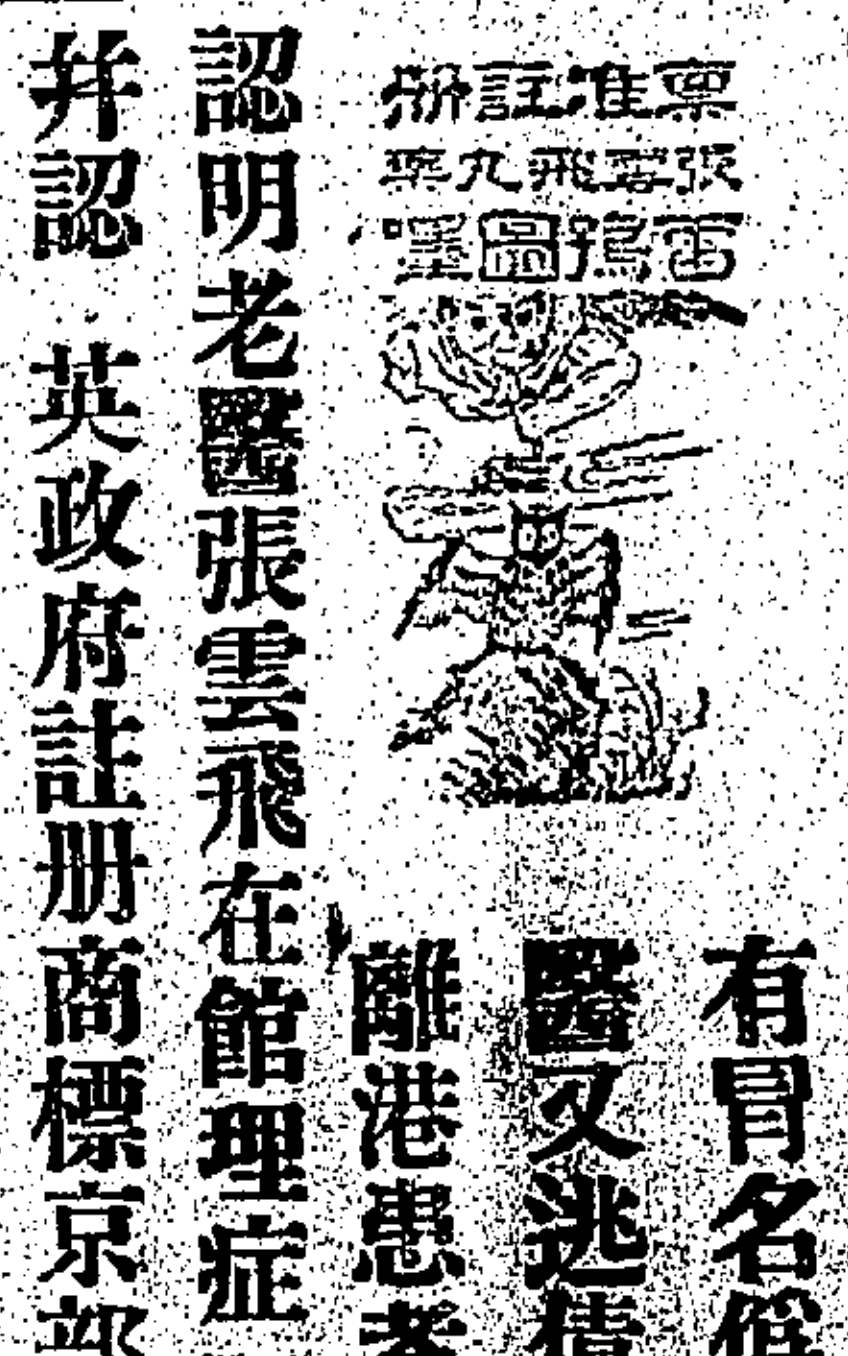 稟准註册
張雲飛丸藥
雷圖
有冒名
醫又逃
離港患者
認明老醫張雲飛在館理症
并認 英政府註册商標京部